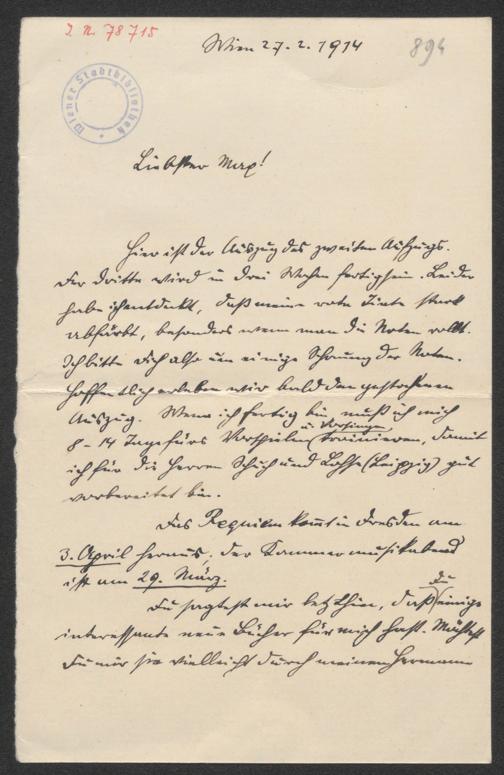 I. N. 78715
Wien 27. 2. 1914
894
Wiener Stadtbibliothek
Liebster Max!
Hier ist der Auszug des zweiten Aufzugs.
Der dritte wird in drei Wochen fertig sein. Leider
habe ich entdeckt, daß meine rote Tinte stark
abfärbt, besonders wenn man die Noten rollt.
Ich bitte Dich also um einige Schonung der Noten.
Hoffentlich erleben wir bald den gestochenen
Auszug. Wenn ich fertig bin, muß ich mich
8-14 Tage fürs Vorspielen (u. Vorsingen) trainieren, damit
ich für die Herren Schuch und Lohse (Leipzig) gut
vorbereitet bin.
Das Requiem kommt in Dresden am
3. April heraus, der Kammermusikabend
ist am 29. März.
Du sagtest mir letzthin, daß Du einige
interessante neue Bücher für mich hast. Möchtest
Du mir sie vielleicht durch meinen Hermann